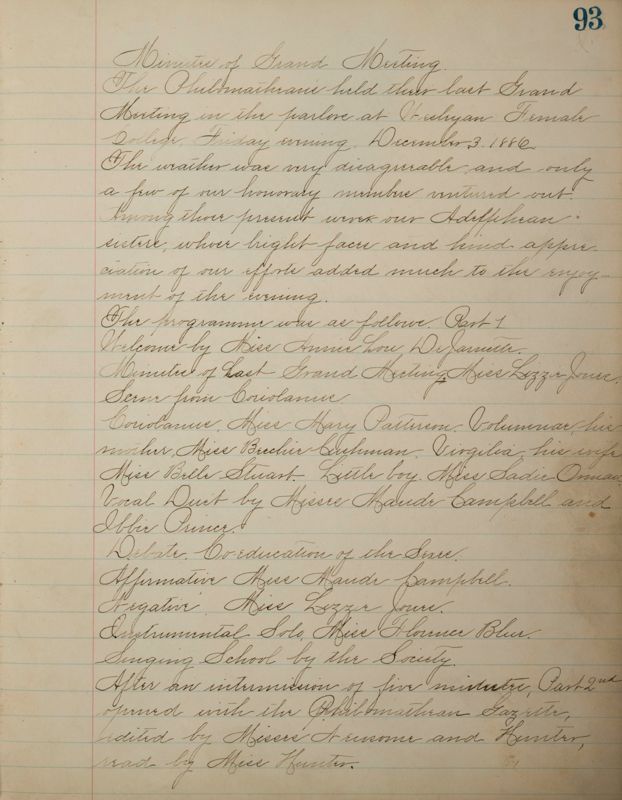 93
Minutes of Grand Meeting.
The Philomatheans held their last Grand
Meeting in the parlors at Wesleyan Female
College, Friday evening, December 3. 1886
The weather was very disagreeable and only
a few of our honorary members ventured out.
Among those present were our Adelphean
sisters, whose bright faces and kind appre-
ciation of our efforts added much to the enjoy-
ment of the evening.
The programme was as follows. Part 1
Welcome by Miss Annie Lou DeJarnette.
Minutes of Last Grand Meeting, Miss Lizzie Jones.
Scene from Coriolanus
Coriolanus, Miss Mary Patterson. Volumnia, his
mother, Miss Beechie Cushman. Virgilia, his wife
Miss Belle Stuart. Little boy, Miss Sadie
Vocal Duet by Misses Maude Campbell and
Ibbie Prince.
Debate. Co-education of the Sexes.
Affirmative Miss Maude Campbell.
Negative. Miss Lizzie Jones.
Instrumental Solo, Miss Florence Blue.
Singing School by the Society.
After an intermission of five minutes, Part 2nd
opened with the Philomathean Gazette,
edited by Misses Newsome and Hunter,
read by Miss Hunter.